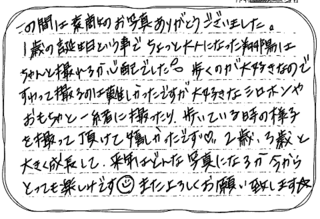 この間は素敵なお写真ありがとうございました。
1歳の誕生日という事でちょっと大人になった翔陽は
ちゃんと撮れるか心配でした。歩くのが大好きなので
すわって撮るのは難しかったですが大好きなシロホンや
おもちゃと一緒に撮ったり、歩いている日常の様子
を撮って頂けて嬉しかったです♡。2歳、3歳と
大きく成長して、来年はどんな写真になるか今から
とっても楽しみです☺またよろしくお願い致します☆